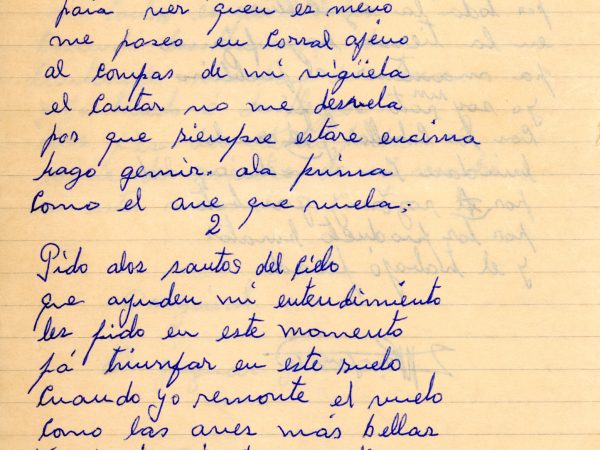 para ver quen es meno
me paseo en corral ajeno
al compas de mi vigüela
el cantar no me desvela
por que siempre estare encima
hago gemir. ala prima
como el ave que vuela;
2
Pido alos santos del Cielo
que ayuden mi entendimiento
les pido en este momento
pá triunfar en este suelo
Cuando yo remonte el vuelo
como las aves más bellas